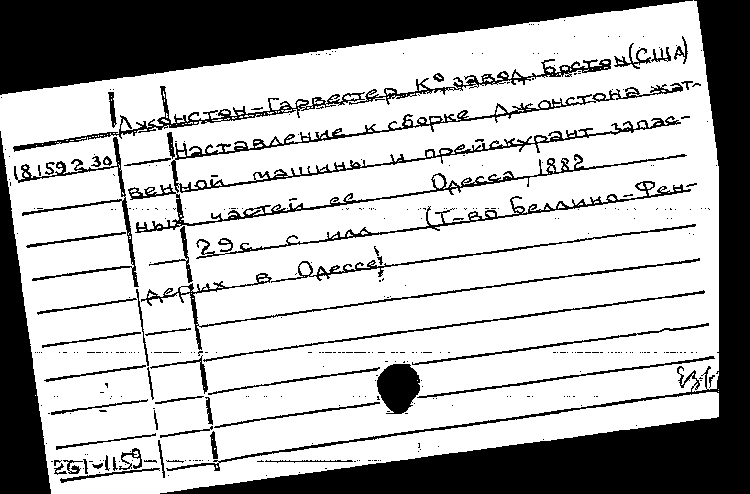 Джонстон-Гарвестер К°, завод, Бостон (США)
18.159.2.30 Наставление к сборке Джонстона жат-
венной машины и прейскурант запас-
ных частей ее Одесса, 1882
29 с. с илл (Т-во Беллино-Фен-
дерих в Одессе)
261-1159